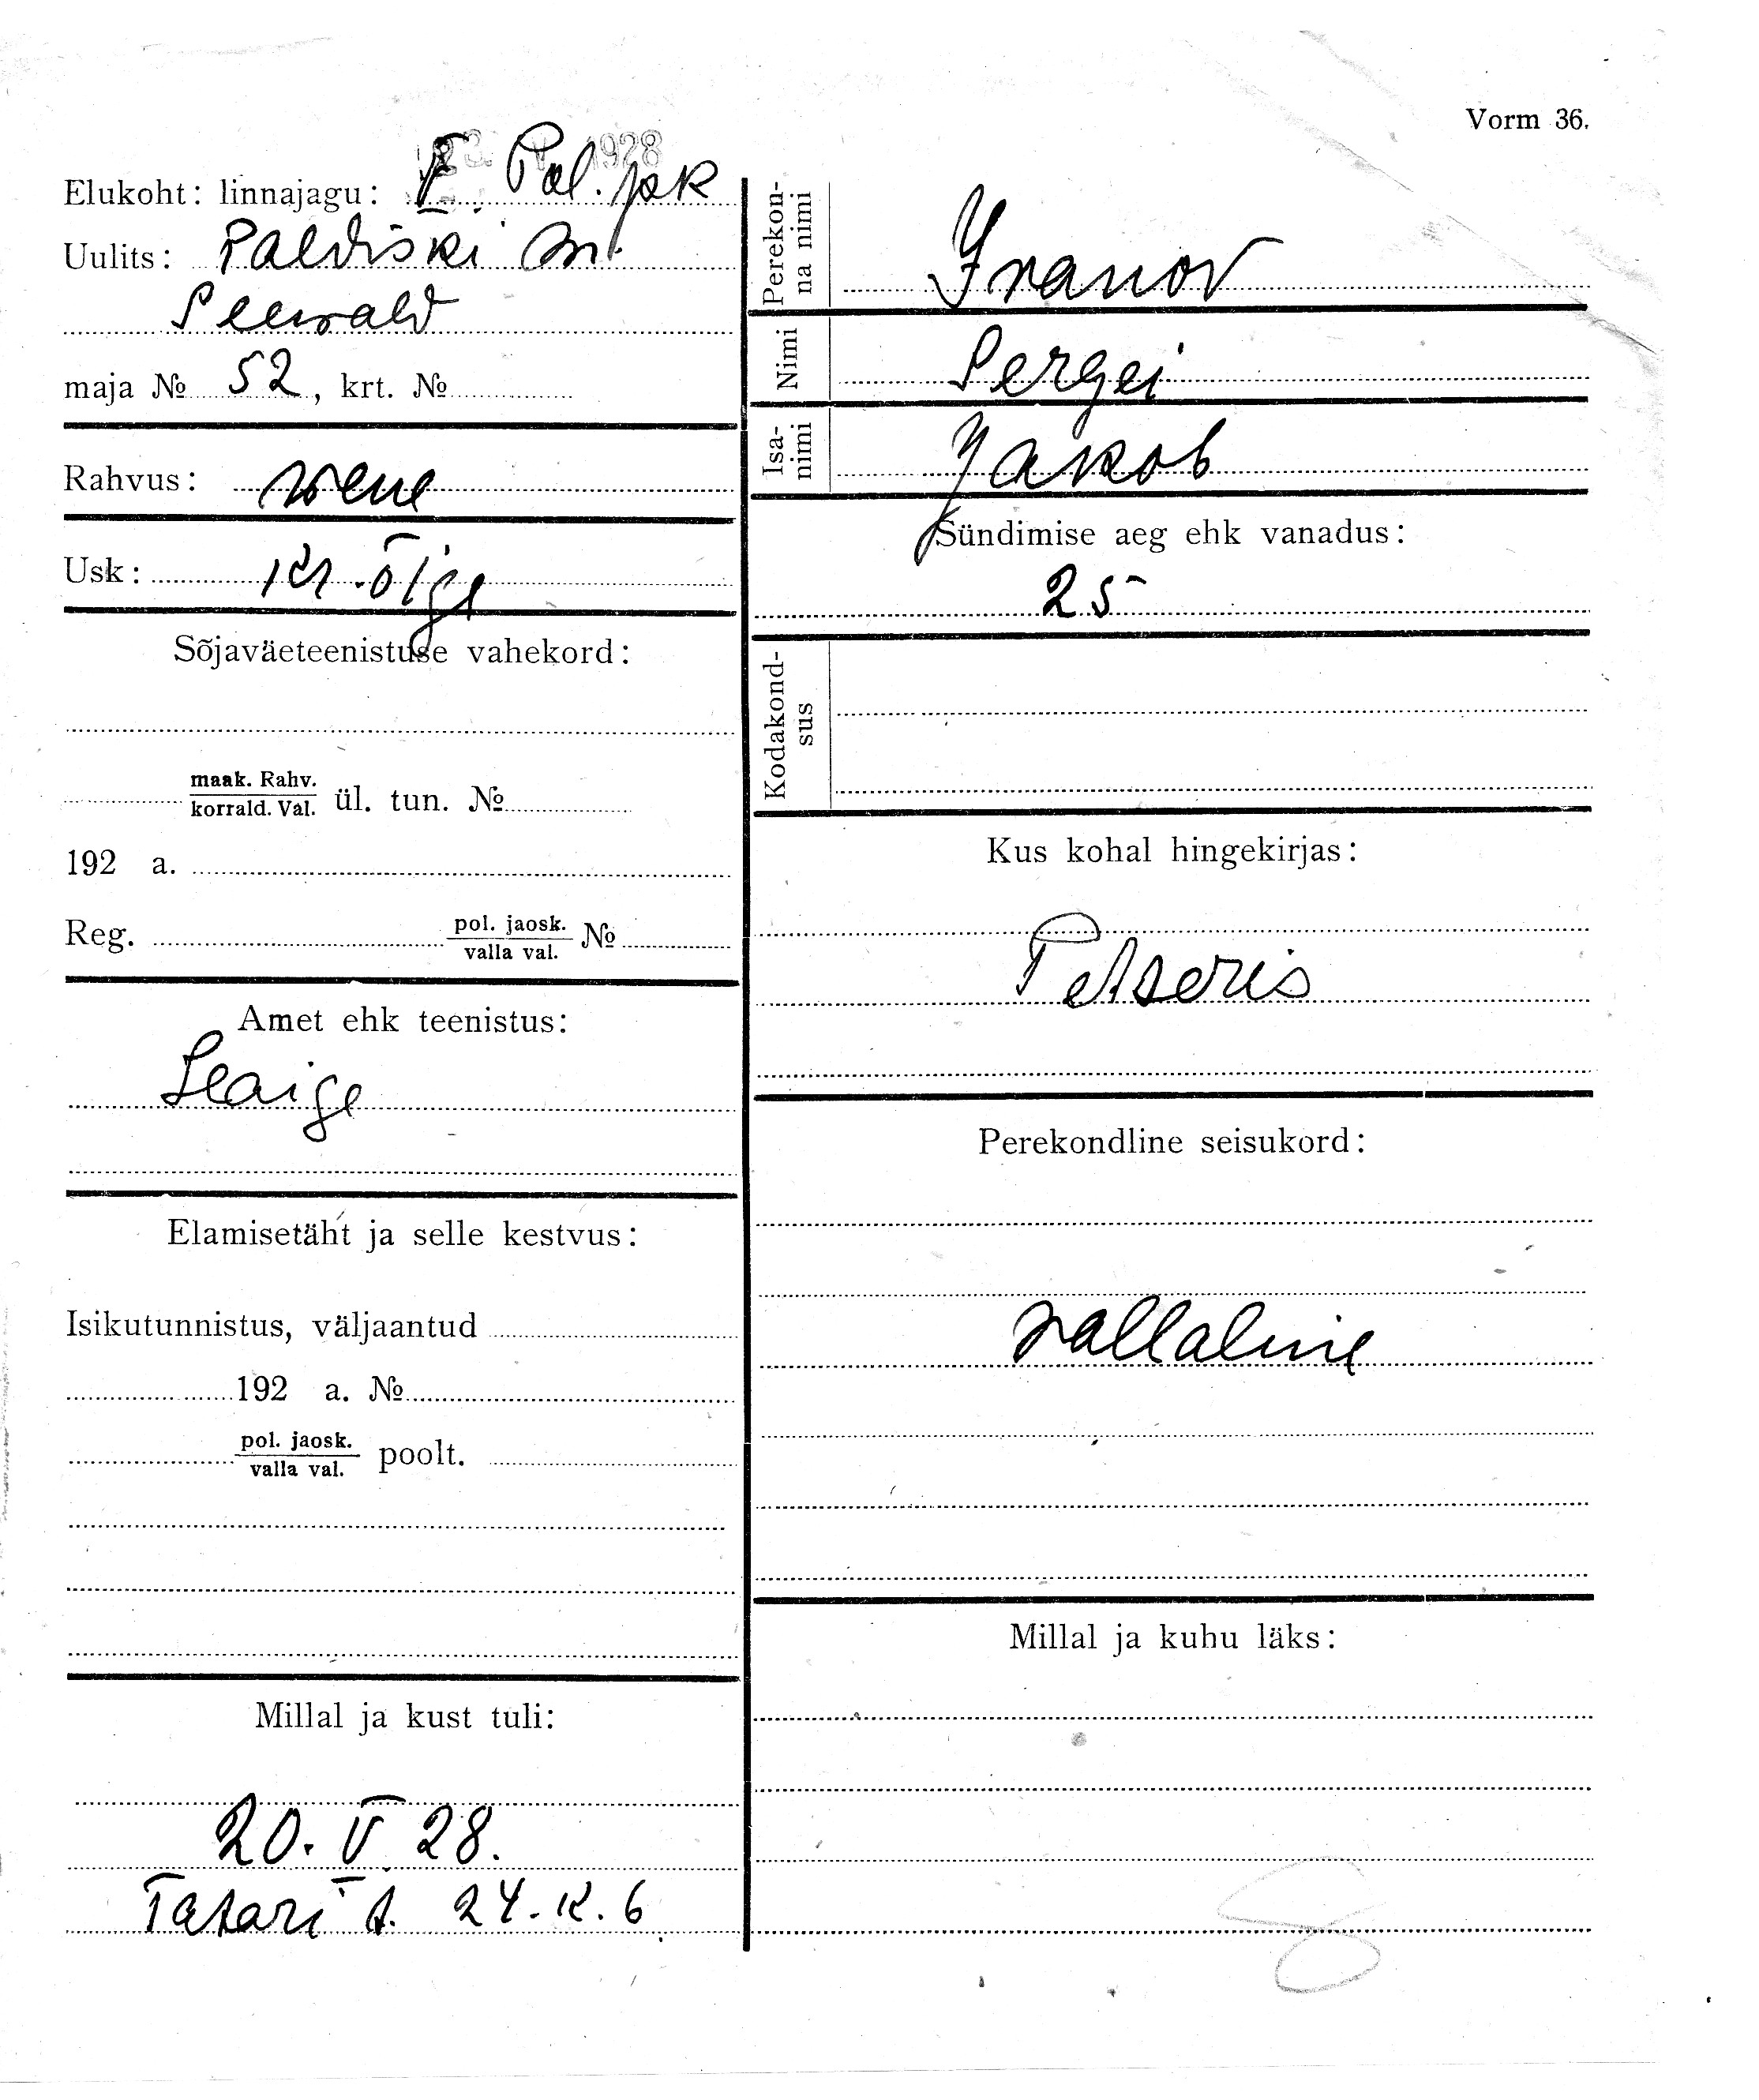 Vorm 36.
1928
Elukoht: linnajagu: V Pol. jsk
Uulits: Paldiski mnt.
Seewald
maja № 52, krt. №
Rahvus: wene
Usk: kr. õige
Sõjaväeteenistuse vahekord:
maak. Rahv.
korrald. Val. ül. tun. №
192 a.
Reg. pol. jaosk.
valla val. №
Amet ehk teenistus:
Haige
Elamisetäht ja selle kestvus:
Isikutunnistus, väljaantud
192 a. №
pol. jaosk.
valla val. poolt.
Millal ja kust tuli:
20. V 28.
Tatari t. 24. k. 6
Perekon-
na nimi
Ivanov
Nimi
Sergei
Isa-
nimi
Jakob
Sündimise aeg ehk vanadus:
25
Kodakond-
sus
Kus kohal hingekirjas:
Petseris
Perekondline seisukord:
vallaline
Millal ja kuhu läks: